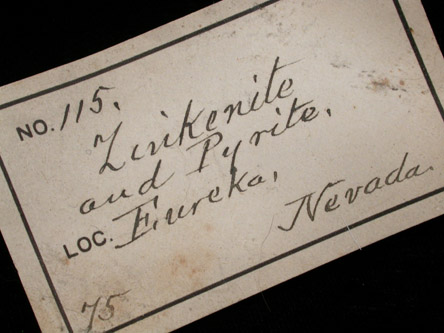 NO. 115.
Zinkenite
and Pyrite.
LOC. Eureka,
Nevada.
75